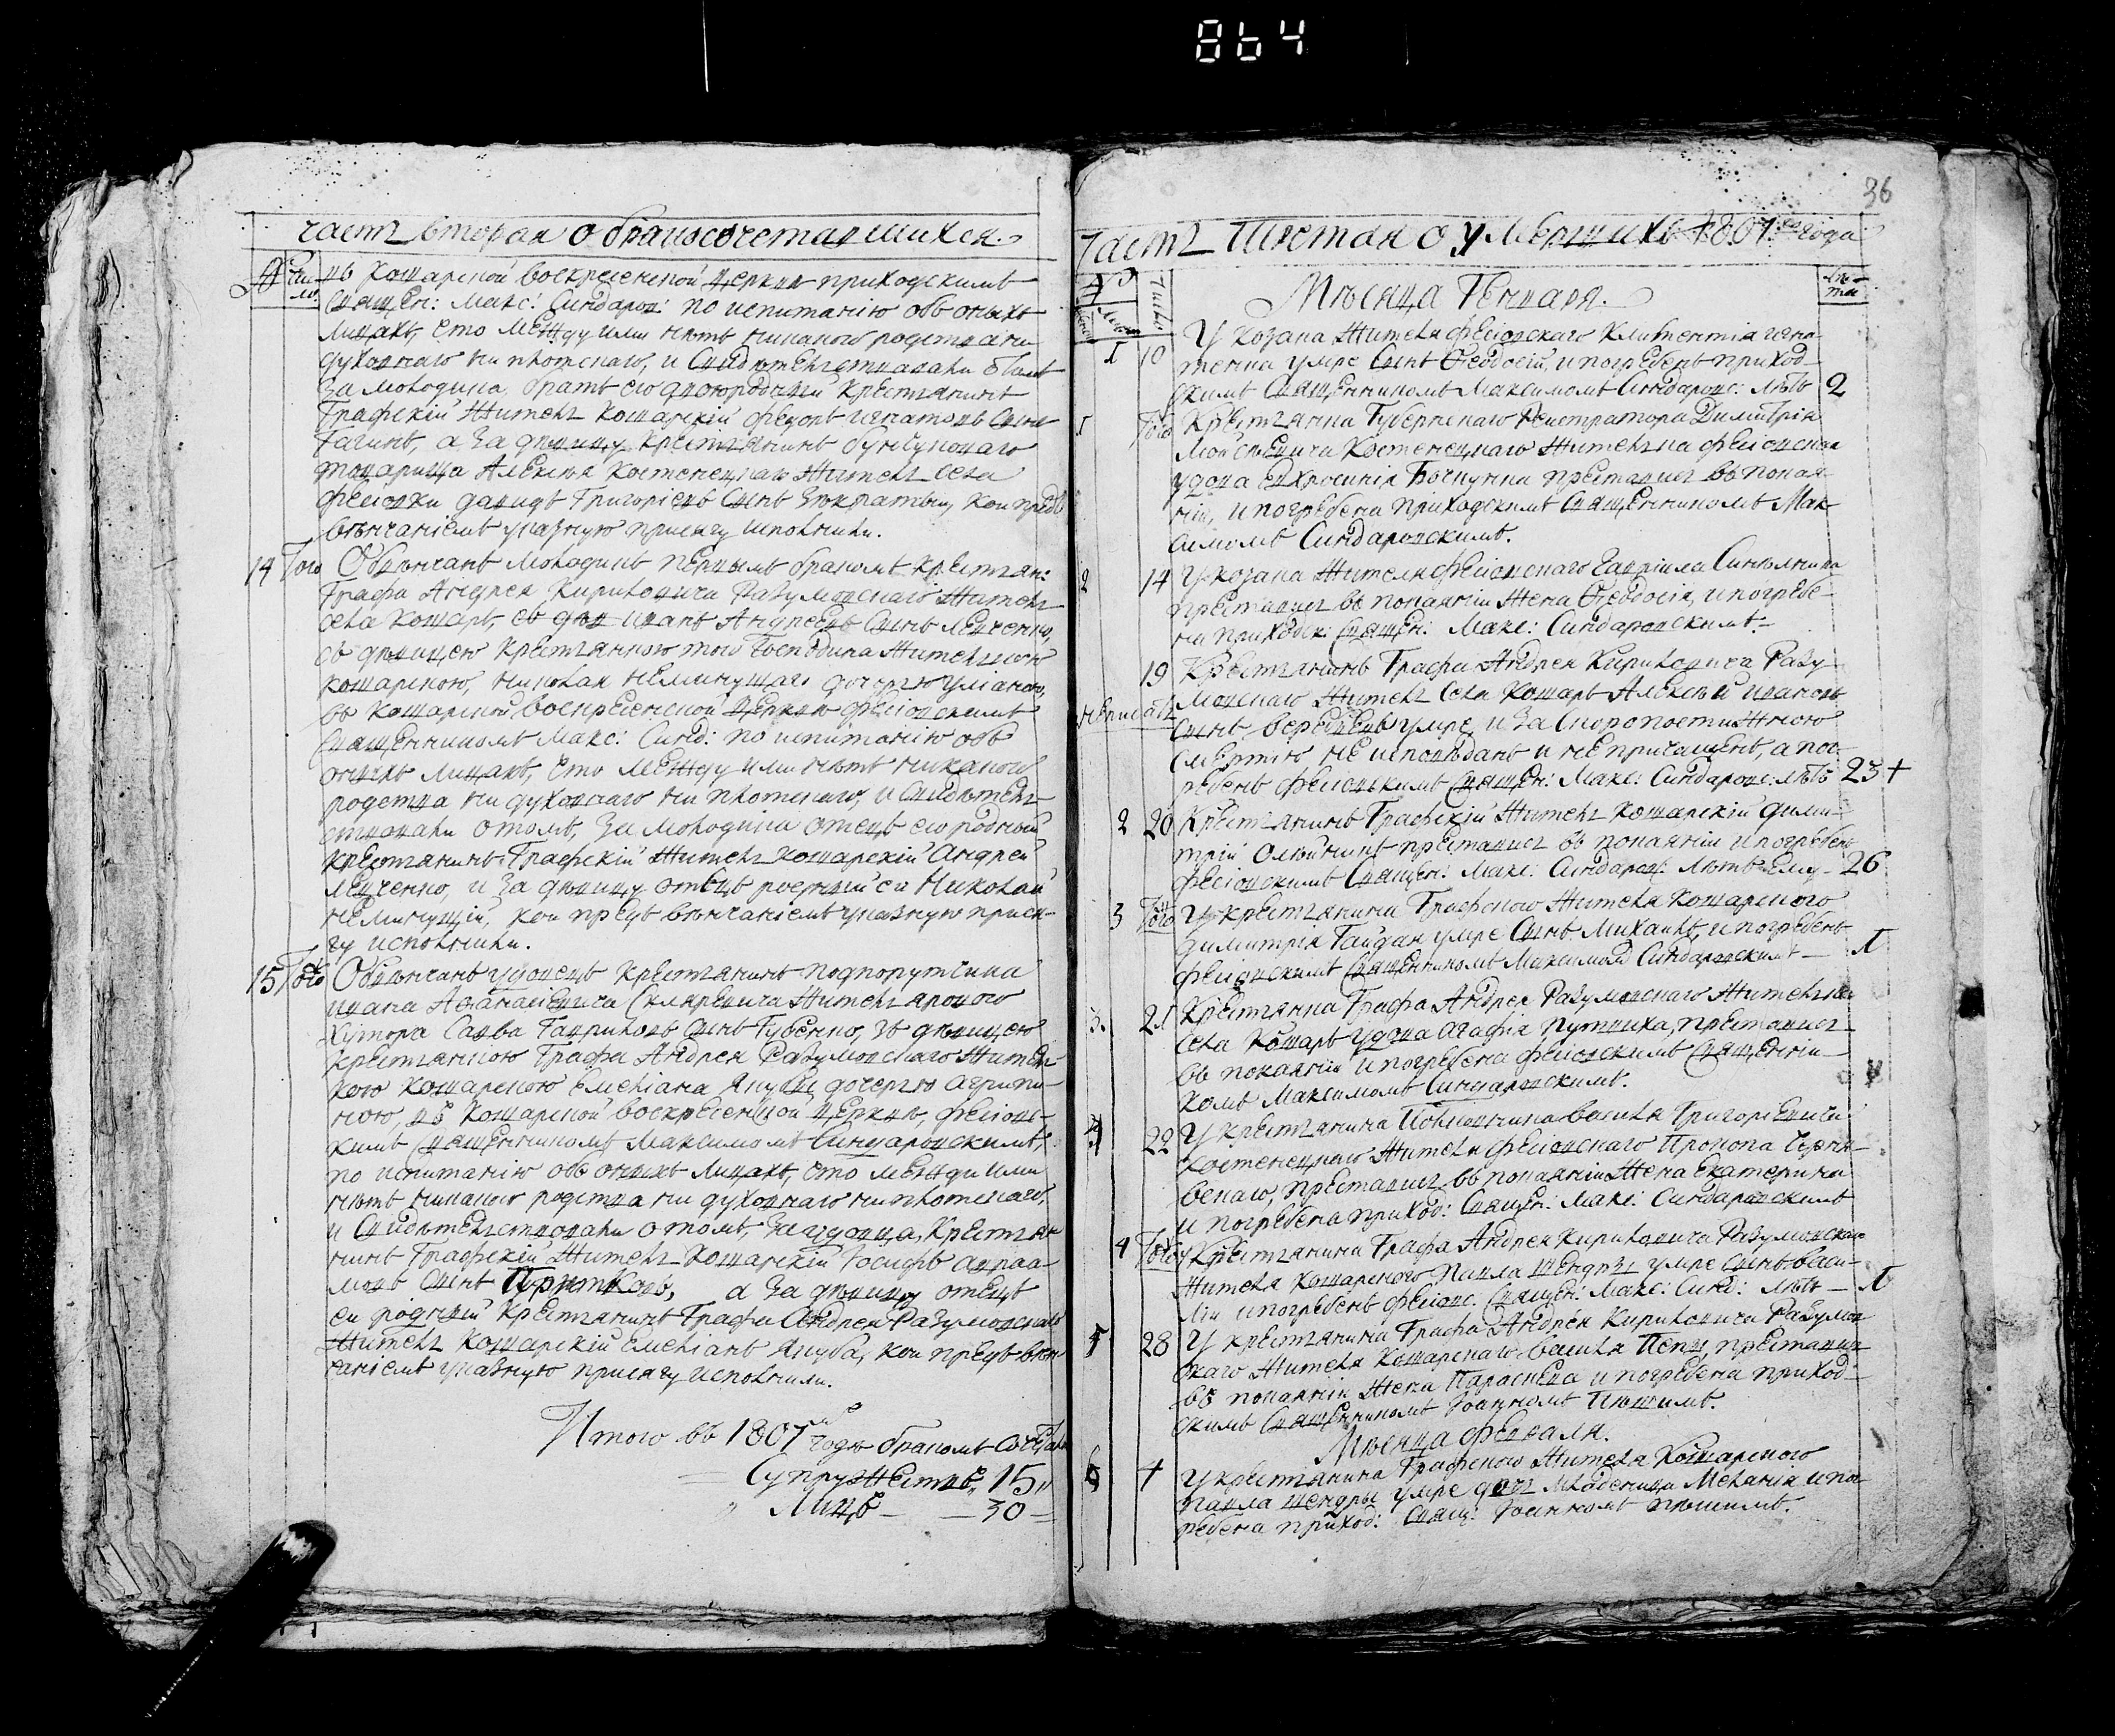 864
часть вторая о бракосочетавшихся.
№ чис ло
въ Кошарской воскресенской церкви приходскимъ
священ: Макс: Синдаров: по испитанію объ оныхъ
лицахъ, что между ими нѣтъ никакого родства ни
духовнаго ни плотскаго, и свидѣтельствовали отомъ
за молодика братъ его двоюродный крестянинъ
Графскій житель кошарскій федоръ игнатовъ сынъ
Гагинъ, а за дѣвицу крестянинъ бунчуковаго
товарища Алексѣя Костенецкаго житель села
фесіовки давидъ Григоріевъ сынъ, кои предъ
вѣнчаніемъ указную присягу исполнили.
14 Того Обвѣнчанъ молодикъ первымъ бракомъ крестян:
Графа Андрея Кириловича Разумовскаго житель
села Кошаръ, иванъ Андреевъ сынъ Левченко,
съ дѣвицею крестянкою того Господина жителькою
кошарскою, николая неминущаго дочерью уліаною,
въ Кошарской воскресенской церкви фесіовскимъ
священникомъ Макс: Синд: по испитанію объ
оныхъ лицахъ, что между ими нѣтъ никакого
родства ни духовнаго ни плотскаго, и свидѣтель-
ствовали отомъ, за молодика отецъ его родной
крестянинъ Графскій житель кошарскій Андрей
Левченко, и за дѣвицу отецъ родный еи Николай
неминущій, кои предъ вѣнчаніемъ указную прися-
гу исполнили.
15 Того Обвѣнчанъ удовецъ крестянинъ подпорутчика
ивана Афанасіевича Скляревича житель ярового
хутора Савва Гавриловъ сынъ Губенко, зъ дѣвицею
крестянкою Графа Андрея Разумовскаго житель-
кою кошарскою Емеліана Янубы дочерью агрипи-
ною, въ Кошарской воскресенской церкви, фесіовс-
кимъ священникомъ Максимомъ Синдаровскимъ,
по испитанію объ оныхъ лицахъ, что межди ими
нѣтъ никакого родства ни духовнаго ни плотскаго,
и свидѣтельствовали отомъ, за удовца, крестя-
нинъ Графскій житель кошарскій Іосифъ авраа-
мовъ сынъ, а за дѣвицу отецъ
еи родный крестянинъ Графа Андрея Разумовскаго
житель Кошарскій Емеліанъ Януба, кои предъ вѣн-
чаніемъ указную присягу исполнили.
Итого въ 1807мъ годѣ бракомъ сочетан
Супружествъ „ 15 „
„ Лицъ — — 30 —
36
Часть Шестая о умершихъ 1807го года
№ Числа лѣ-
та
Мѣсяца Генваря.
У козака жителя фесіовскаго Климентія
1 10 умре сынъ Ѳеодосій, и погребенъ приход-
скимъ священникомъ Максимомъ Синдаровс: лѣтъ 2
1 Того Крестянка Губернскаго Регистратора Димитрія
Моисѣевича Костенецкаго жителька фесіовская
удова Ефросинія преставис въ покая-
ніи, и погребена приходскимъ священникомъ Мак-
симомъ Синдаровскимъ.
2 14 У козака жителя фесіовскаго Гавріила Синѣлника
преставис въ покаяніи жена Ѳеодосія, и погребе-
на приходск: священ: Макс: Синдаровскимъ.
19 Крестянинъ Графа Андрея Кириловича Разу-
мовскаго житель села Кошаръ Алексѣй ивановъ
сынъ умре, и за скоропостижною
смертію, не исповѣданъ и не причащенъ, а пог-
ребенъ фесіовскимъ священ: Макс: Синдаровс: лѣтъ 23 +
2 20 Крестянинъ Графскій житель кошарскій дими-
трій Олѣйникъ преставис въ покаяніи и погребенъ
фесіовскимъ священ: Макс: Синдаров: лѣтъ Ему — 26
3 Того У крестянина Графского жителя Кошарского
димитрія Гайдая умре сынъ Михаилъ, и погребенъ
фесіовскимъ священникомъ Максимомъ Синдаровскимъ — 1
3. 21 Крестянка Графа Андрея Разумовскаго жителька
села Кошаръ удова агафія путныха, преставис
въ покаяніи и погребена фесіовскимъ священни-
комъ Максимомъ Синдаровскимъ.
4 22 У крестянина Полковника василя Григоріевича
Костенецкаго жителя фесіовскаго Прокопа
преставис въ покаяніи жена Екатерина
и погребена приход: священ: Макс: Синдаровскимъ
4 Того У Крестянина Графа Андрея Кириловича Разумовскаго
жителя кошарского Павла шендры умре сынъ васи-
лій и погребенъ фесіовс. священ: Макс: Синд: лѣтъ — 1
5 28 У крестянина Графа Андрея Кириловича Разумов
скаго жителя Кошарскаго василя преставис
въ покаяніи жена Параскева и погребена приход-
скимъ священникомъ Іоанномъ
Мѣсяца февраля.
6 У крестянина Графского жителя Кошарского
павла шендры умре дочь младеница Меланія и пог-
ребена приход: свящ: Іоанномъ